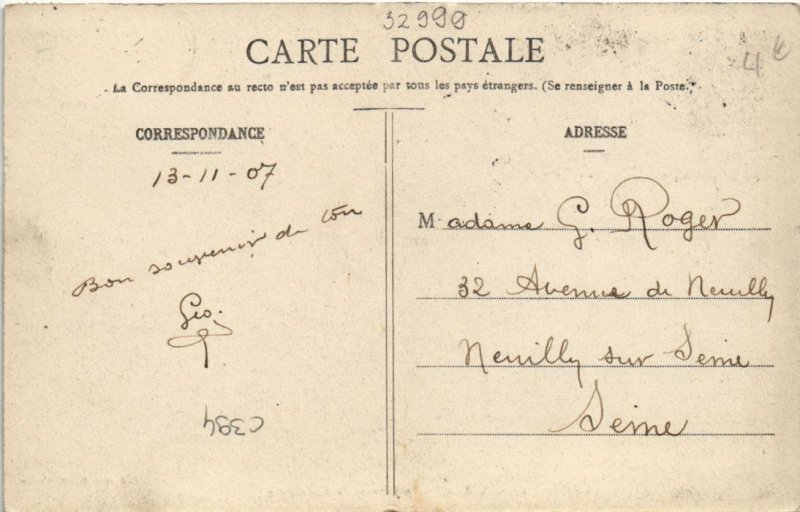 32990
CARTE POSTALE
4€
La Correspondance au recto n'est pas acceptée par tous les pays étrangers. (Se renseigner à la Poste.)
CORRESPONDANCE
13-11-07
Bon souvenir de ton
Geo.
C394
ADRESSE
Madame G. Roger
32 Avenue de Neuilly
Neuilly sur Seine
Seine